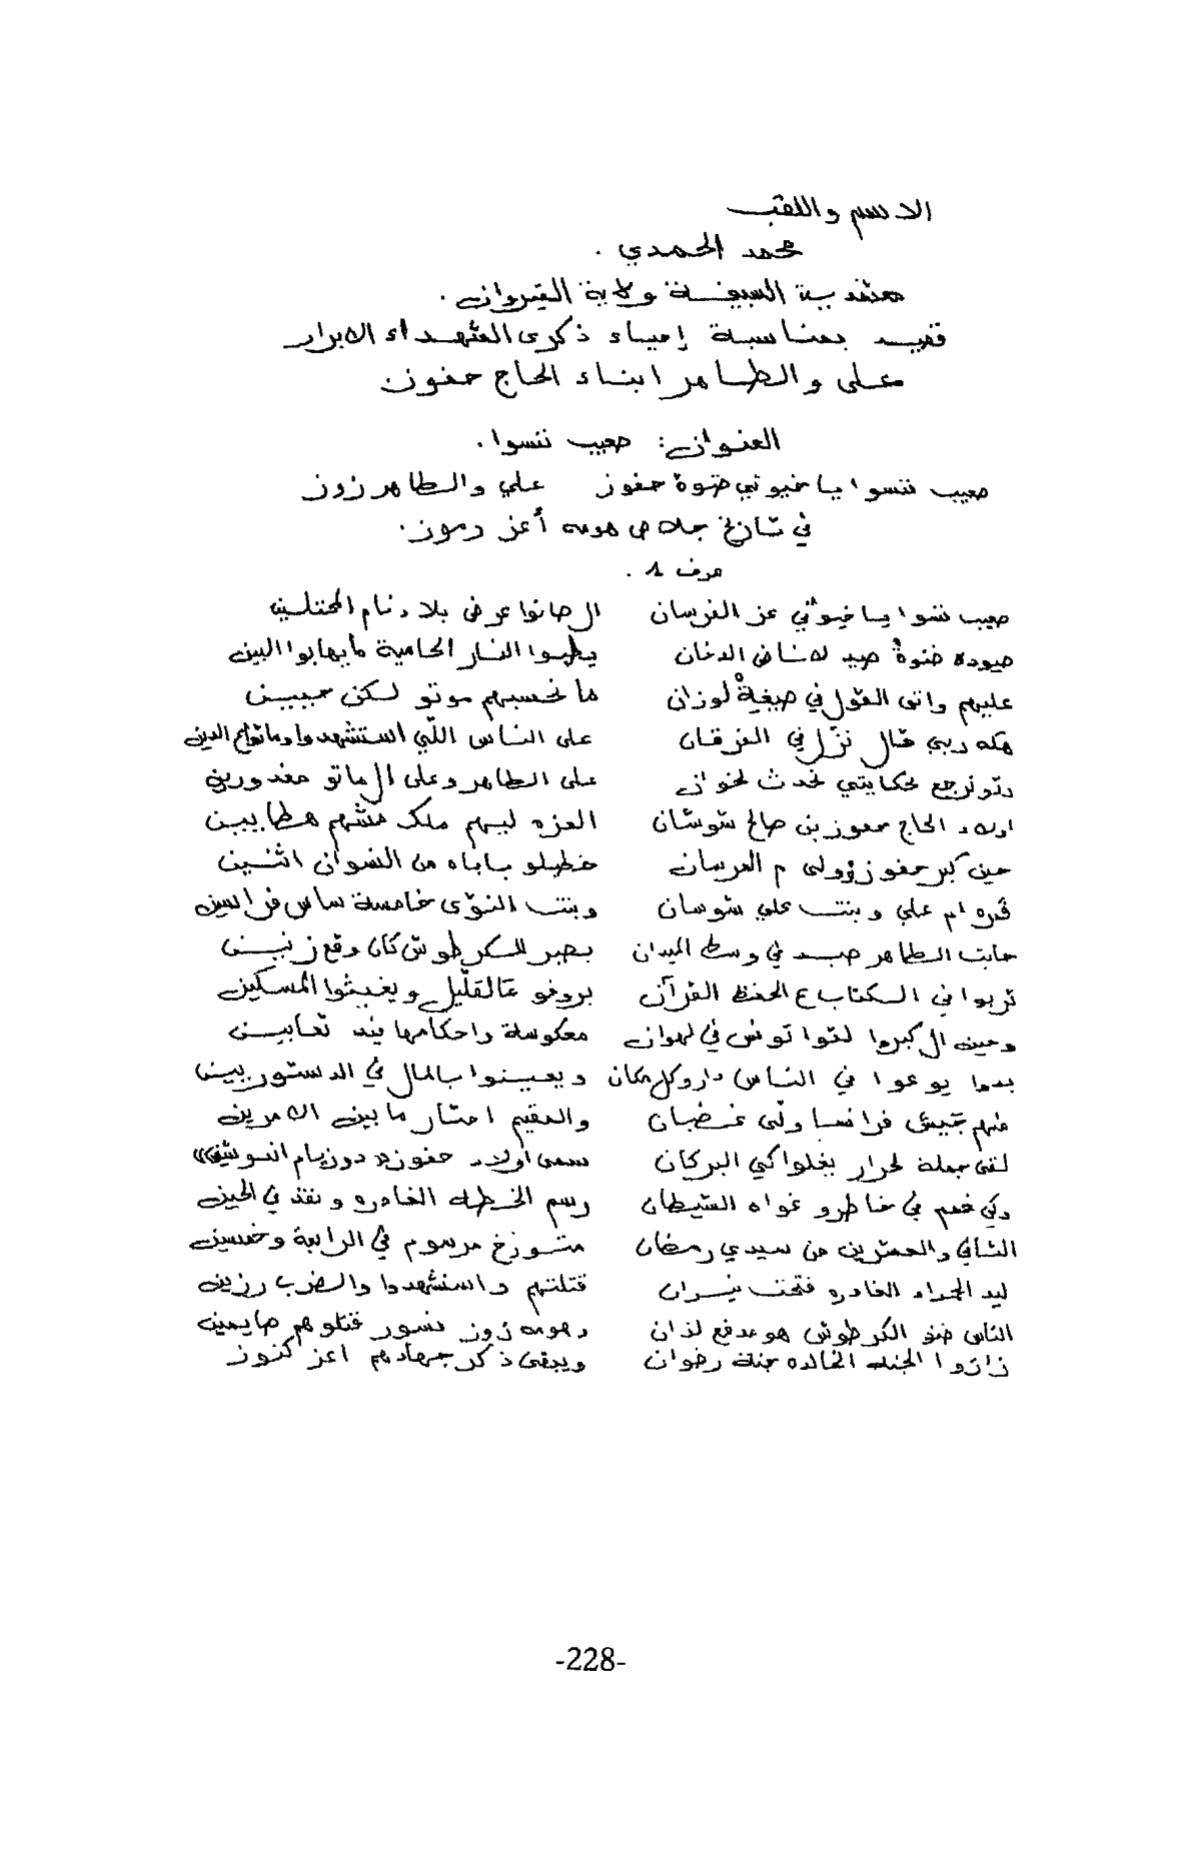 الاسم واللقب
محمد الحمدي .
معتمدية السبيخة ولاية القيروان .
قصيد بمناسبة إحياء ذكرى الشهداء الابرار
علي والطاهر ابناء الحاج حفوز
العنوان : صعيب ننسوا .
صعيب ننسوا يا خيوتي ضنوة حفوز علي والطاهر زوز
في تاريخ جلاص هومه أعز رموز .
حرف 1 .
صعيب ننسوا يا خيوتي عز الفرسان الصانوا عرض بلادنا م المحتلين
صيوده ضنوة صيد الدخان يطبوا النار الحامية ما يهابوا البين
عليهم واتى القول في صيغة لوزان ما نحسبهم موتو لكن حيين
هكه ربي قال نزل في الفرقان على الناس اللّي استشهدوا الدين
وتو نرجع لحكايتي نحدث لخوان على الطاهر وعلى الماتو مغدورين
اولاد الحاج حفوز بن صالح شوشان العزه ليهم ملك
حين كبر حفوز وولى م العرسان خطبلو باباه من النسوان اثنين
قمره ام علي وبنت علي شوسان وبنت النوّي خامسة ساس فراسين
جابت الطاهر صيد في وسط الميدان بصبر للكرطوش كان وقع زنين
تربوا في الكتاب ع الحفظ القرآن يروفو عالقليل ويغيثوا المسكين
وحين الكبروا لقوا تونس في لهوان معكوسة واحكامها بيد ثعابين
بدوا يوعوا في الناس دار وكل مكان ويعينوا بالمال في الدستوريين
منهم جيش فرانسا ولّى غضبان والمقيم احتار ما بين الامرين
لقى جملة لحرار يغلوا كي البركان سمى أولاد حفوز
وكي خمم في خاطرو غواه الشيطان رسم الخطه الغادره ونفذ في الحين
الثاني والعشرين من سيدي رمضان متورخ مرسوم في الرابعة وخمسين
ليد الحمراء الغادره فتحت نيران قتلتهم واستشهدوا والضرب رزين
الناس ضنو الكرطوش هو مدفع لذان وهومه زوز نسور قتلوهم صايمين
زاروا الجنه الخالده جنة رضوان ويبقى ذكر جهادهم اعز كنوز
-228-